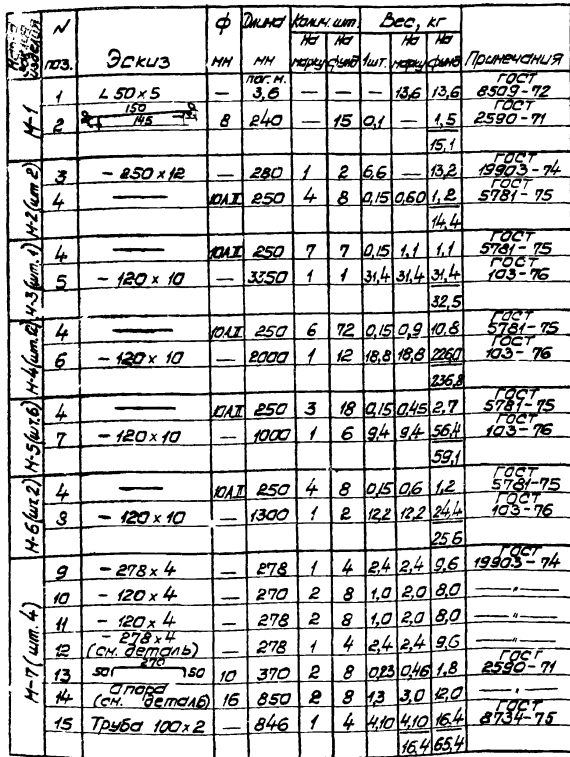 N Эскиз ф Длина Колич. шт. Вес, кг Примечания
поз. мм мм На марку На фунд 1шт. На марку На фунд
М-1
1 L 50×5 — пог. м. 3,6 — — — 13,6 13,6 ГОСТ 8509-72
2 150 145 8 240 — 15 0,1 — 1,5 ГОСТ 2590-71
15,1
М-2 (шт 2)
3 - 250×12 — 280 1 2 6,6 — 13,2 ГОСТ 19903-74
4 — 10АII 250 4 8 0,15 0,60 1,2 ГОСТ 5781-75
14,4
М-3 (шт. 1)
4 — 10АII 250 7 7 0,15 1,1 1,1 ГОСТ 5781-75
5 - 120×10 — 3350 1 1 31,4 31,4 31,4 ГОСТ 103-76
32,5
4 — 10АII 250 6 72 0,15 0,9 10.8 ГОСТ 5781-75
6 - 120×10 — 2000 1 12 18,8 18,8 226,0 ГОСТ 103-76
236,8
М-5 (шт.6)
4 — 10АII 250 3 18 0,15 0,45 2,7 ГОСТ 5781-75
7 - 120×10 — 1000 1 6 9,4 9,4 56,4 ГОСТ 103-76
59,1
М-6 (шт. 2)
4 — 10АII 250 4 8 0,15 0,6 1,2 ГОСТ 5781-75
- 120×10 — 1300 1 2 12,2 12,2 24,4 ГОСТ 103-76
25.6
М-7 (шт. 4)
9 - 278×4 — 278 1 4 2,4 2,4 9,6 ГОСТ 19903-74
10 - 120×4 — 270 2 8 1,0 2,0 8,0 —"—
11 - 120×4 — 278 2 8 1,0 2,0 8,0 —"—
12 - 278×4 (см. деталь) — 278 1 4 2,4 2,4 9,6 —"—
13 50 270 50 10 370 2 8 0,23 0,46 1,8 ГОСТ 2590-71
14 опора (см. деталь) 16 850 2 8 1,3 3,0 12,0 —"—
15 Труба 100×2 — 846 1 4 4,10 4,10 16,4 ГОСТ 8734-75
16,4 65,4